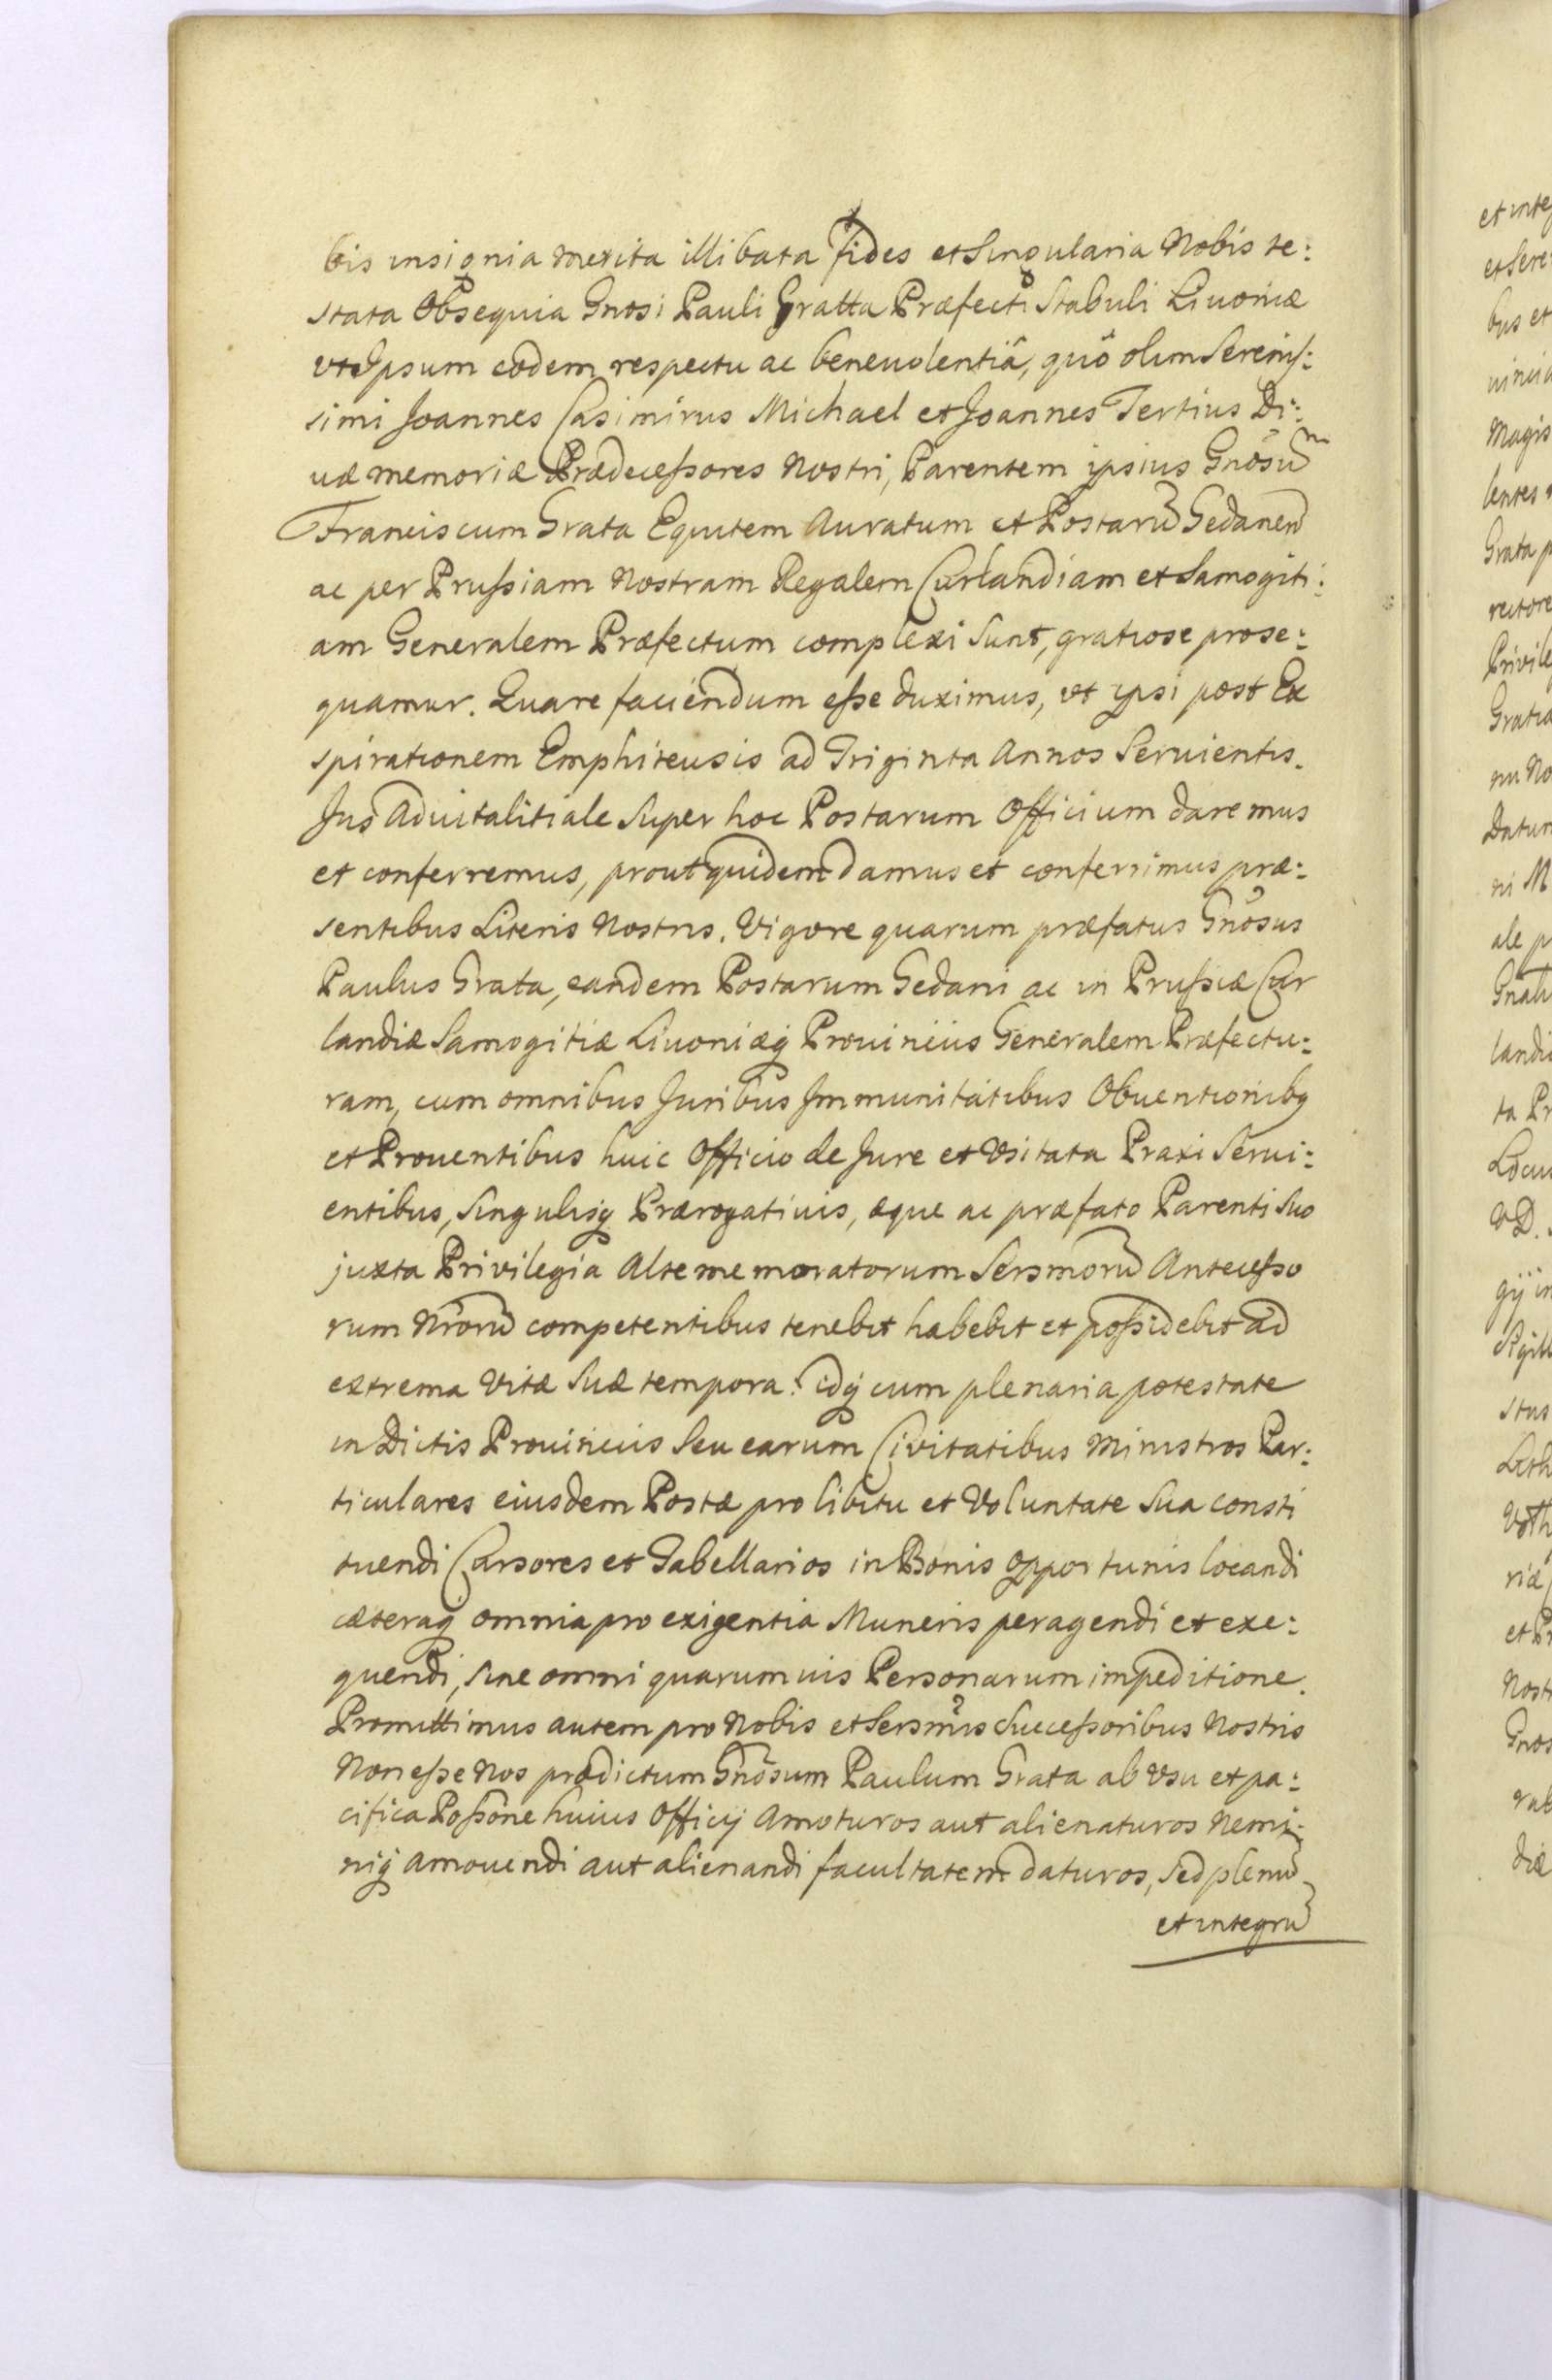 bis insignia merita illibata fides et Singularia Nobis te:
stata Obsequia Gnosi Pauli Gratta Præfecti Stabuli Liuoniæ
vt Ipsum eodem respectu ac beneuolentiâ, quô olim Sereniſ:
simi Joannes Casimirus Michael et Joannes Tertius Di:
uæ memoriæ Prædeceſsores Nostri, Parentem ipsius Gnosum
Franciscum Grata Equitem Auratum et Postarū Gedanen
ac per Pruſsiam Nostram Regalem Curlandiam et Samogiti:
am Generalem Præfectum complexi Sunt, gratiose prose:
quamur. Quare faciendum eſse duximus, vt ypsi post Ex
spirationem Emphiteusis ad Triginta Annos Seruientis.
Jus Aduitalitiale Super hoc Postarum Officium daremus
et conferremus, prout quidem damus et conferrimus præ:
sentibus Literis Nostris. Vigore quarum præfatus Gnosus
Paulus Grata, eandem Postarum Gedani ac in Pruſsiæ Cur
landiæ Samogitiæ Liuoniæq Prouincijs Generalem Præfectu:
ram, cum omnibus Juribus Immunitatibus Obuentionibq
et Prouentibus huic Officio de Jure et Vsitata Praxi Serui:
entibus, Singulisq Prærogatiuis, æque ac præfato Parenti Suo
juxta Privilegia Altememoratorum Sersmorū Anteceſso
rum Nrorū competentibus tenebit habebit et poſsidebit ad
extrema Vitæ Suæ tempora. idq cum plenaria potestate
in Dictis Prouincijs Seu earum Civitatibus Ministros Par:
ticulares eiusdem Postæ pro libitu et Voluntate Sua consti
tuendi Cursores et Tabellarios in Bonis opportunis locandi
cæteraq omnia pro exigentia Muneris peragendi et exe:
quendi, Sine omni quarumuis Personarum impeditione.
Promittimus autem pro Nobis et Sersmis Succeſsoribus Nostris
Non eſse Nos prædictum Gnosum Paulum Grata ab Vsu et pa:
cifica Poſsone huius Officij Amoturos aut alienaturos Nemi:
niq amouendi aut alienandi facultatem daturos, Sed plenū
et integrū